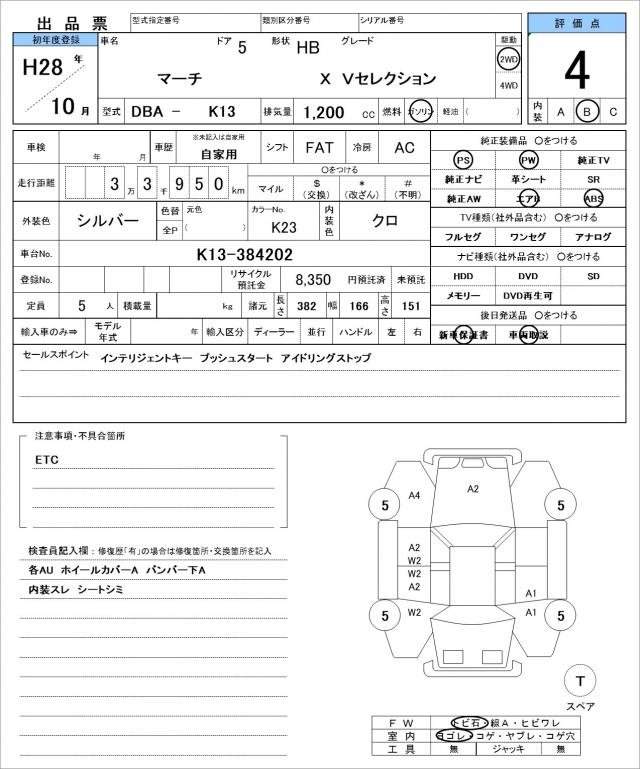 出品票 型式指定番号 類別区分番号 シリアル番号
評価点
初年度登録 車名 ドア 5 形状 HB グレード 駆動
H28年 マーチ X Vセレクション 2WD 4
4WD
10月 型式 DBA - K13 排気量 1,200 CC 燃料 ガソリン 軽油 ( ) 内装 A B C
車検 年 月 車歴 ※未記入は自家用 自家用 シフト FAT 冷房 AC
純正装備品 〇をつける
PS PW 純正TV
走行距離 3 3 9 5 0 万 千 km 〇をつける
マイル $ (交換) * (改ざん) # (不明)
純正ナビ 革シート SR
純正AW エアB ABS
外装色 シルバー 色替 元色 全P ( ) カラーNo. K23 内装色 クロ
TV種類(社外品含む) 〇をつける
フルセグ ワンセグ アナログ
車台No. K13-384202
ナビ種類(社外品含む) 〇をつける
登録No. リサイクル預託金 8,350 円預託済 未預託
HDD DVD SD
メモリー DVD再生可
定員 5 人 積載量 kg 諸元 長さ 382 幅 166 高さ 151
後日発送品 〇をつける
輸入車のみ⇒ モデル年式 年 輸入区分 ディーラー 並行 ハンドル 左 右
新車保証書 車両取説
セールスポイント インテリジェントキー プッシュスタート アイドリングストップ
注意事項・不具合箇所
ETC
検査員記入欄:修復歴「有」の場合は修復箇所・交換箇所を記入
各AU ホイールカバーA バンパー下A
内装スレ シートシミ
A4 A2
5 5
A2
W2
W2
A2 A1
5 W2 A1 5
T
スペア
FW トビ石・線A・ヒビワレ
室内 ヨゴレ・コゲ・ヤブレ・コゲ穴
工具 無 ジャッキ 無